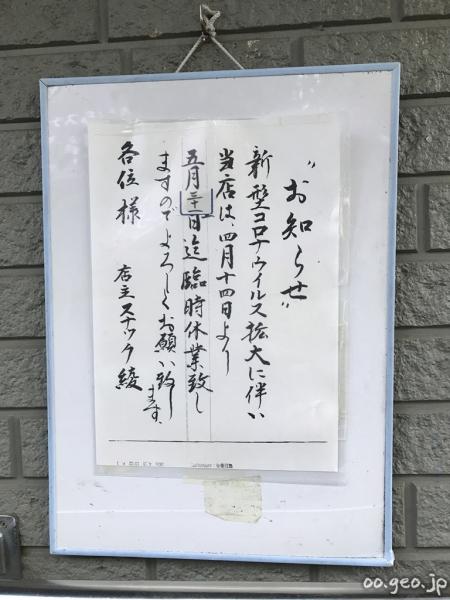 "お知らせ"
新型コロナウイルス拡大に伴い
当店は、四月十四日より
五月三十一日迄臨時休業致し
ますのでよろしくお願い致し
ます。
各位様
店主スナック綾
oo.geo.jp